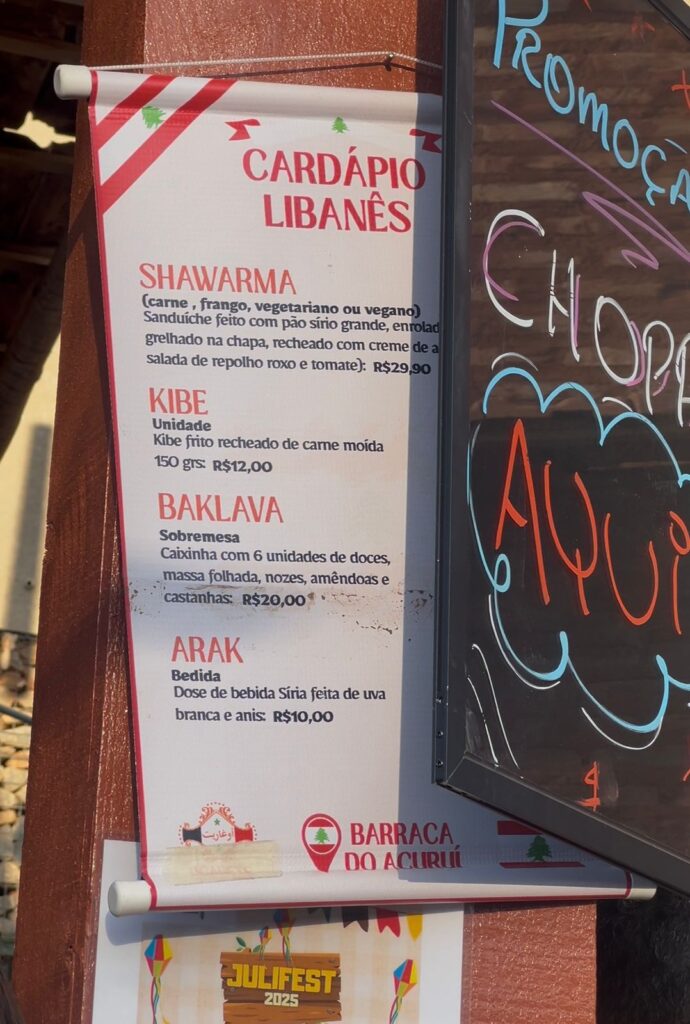 CARDÁPIO
LIBANÊS
SHAWARMA
(carne , frango, vegetariano ou vegano)
Sanduíche feito com pão sírio grande, enrolad
grelhado na chapa, recheado com creme de a
salada de repolho roxo e tomate): R$29,90
KIBE
Unidade
Kibe frito recheado de carne moída
150 grs: R$12,00
BAKLAVA
Sobremesa
Caixinha com 6 unidades de doces,
massa folhada, nozes, amêndoas e
castanhas: R$20,00
ARAK
Bedida
Dose de bebida Síria feita de uva
branca e anis: R$10,00
أوغاريت
BARRACA
DO ACURUÍ
JULIFEST
2025
PROMOÇA
CHOPP
AQUI